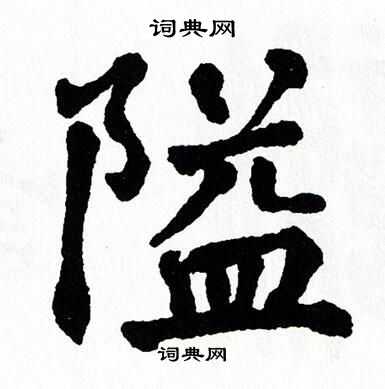 词典网
隘
词典网